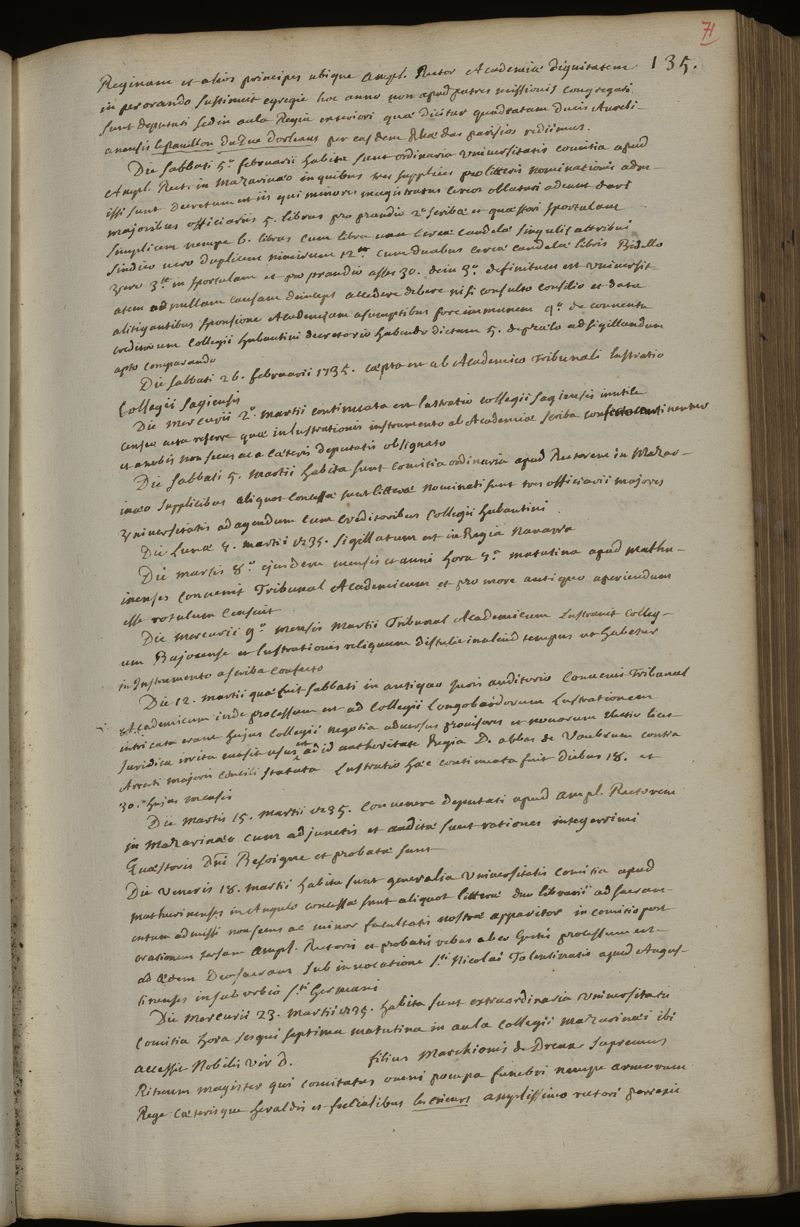 71
135.
Reginam et alios principes ubique ampl. Rector Academiæ dignitatem
in perorando sustinuit egregie hoc anno non apud patres missionis congregati
sunt deputati sed in aula Regia interiori quæ dicitur quadratum ducis Aureli-
anensis le pavillon du Duc Dorleans per easdem Rhedas parisios rediimus.
Die Sabbati 5ª februarii habita sunt ordinaria universitatis comitia apud
Ampl. Rect. in Mazarinæo in quibus tres supplices pro litteris nominationis adm-
issi sunt decretum est iis qui minores magistratus cereos oblaturi adeunt dari
majoribus officiariis 5. libras pro prandio 2º scribæ et quæstori sportulam
simplicem nempe 6. libras cum libra una cereæ candelæ singulis attribui
sindico vero duplicem nimirum 12 cum duabus cereæ candelæ libris Bidello
vero 3 in sportulam et pro prandio asses 30. dein 3º definitum est universit
atem ad nullam causam deinceps accedere debere nisi consulto consilio et data
alitigantibus sponsione Academiam a sumptibus fore immunem 4º de conventu
creditorum Collegii hubantini decretorio habendo dictum 5. de prælo ad sigillandum
apto comparando
Die Sabbati 26. februarii 1735. cæpta est ab Academico Tribunali lustratio
Collegii Sagiensis
Die mercurii 2ª martii continuata est lustratio collegii sagiensis inutile
censeo acta referre quæ in lustrationis instrumento ab Academiæ scriba confecto continentur
et a nobis non secus ac a cæteris deputatis obsignato
Die Sabbati 5. Martii habita sunt comitia ordinaria apud Rectorem in Mazar-
inæo supplicibus aliquot concessæ sunt litteræ nominati sunt tres officiarii majores
Universitatis ad agendum cum creditoribus Collegii hubantini.
Die Lunæ 7. martii 1735. sigillatum est in Regia Navarra
Die martis 8ª ejusdem mensis et anni hora 7ª matutina apud mathu-
rinenses convenit Tribunal Academicum et pro more antiquo aperiendum
esse rotulum censuit
Die mercurii 9ª mensis Martii Tribunal Academicum lustravit colleg-
ium Bajocense et lustrationis reliquum distulit in aliud tempus ut habetur
in Instrumento a scriba confecto
Die 12. Martii quæ fuit sabbati in antiquo Juris auditorio convenit Tribunal
Academicum inde processum est ad collegii Longobardorum Lustrationem
intricata erant hujus collegii negotia adversus provisores et novorum electio licet
Juridice irrita mansit usus est ad id authoritate Regia D. abbas de Vaubrun contra
Arresti majoris concilii statuta Lustratio hæc continuata fuit diebus 18. et
30.ª hujus mensis
Die Martis 15. martii 1735. convenere deputati apud ampl. Rectorem
in Mazarinæo cum adjunctis et auditæ sunt rationes integerrimi
Quæstoris Dni Besoigne et probatæ sunt
Die Veneris 18. martii habita sunt generalia Universitatis comitia apud
mathurinenses in Angulo concessæ sunt aliquot litteræ duo librarii ad sacram-
entum admissi non secus ac minor facultatis nostræ apparitor in comitio post
orationem tersam ampl. Rectoris et probatis rebus ab eo gestis processum est
ad ædem Deo sacram sub invocatione sti Nicolai Tolentinatis apud Augus-
tinenses in suburbio sti Germani
Die Mercurii 23. martii 1735. habita sunt extraordinaria universitatis
Comitia hora sesqui septima matutina in aula collegii mazarinæi ibi
accessit Nobilis vir D. filius Marchionis de Dreux Supremus
Rituum magister qui comitatus omni pompa funebri nempe armorum
Rege cæterisque heraldis et fæcialibus les crieurs amplissimo rectori perrexit